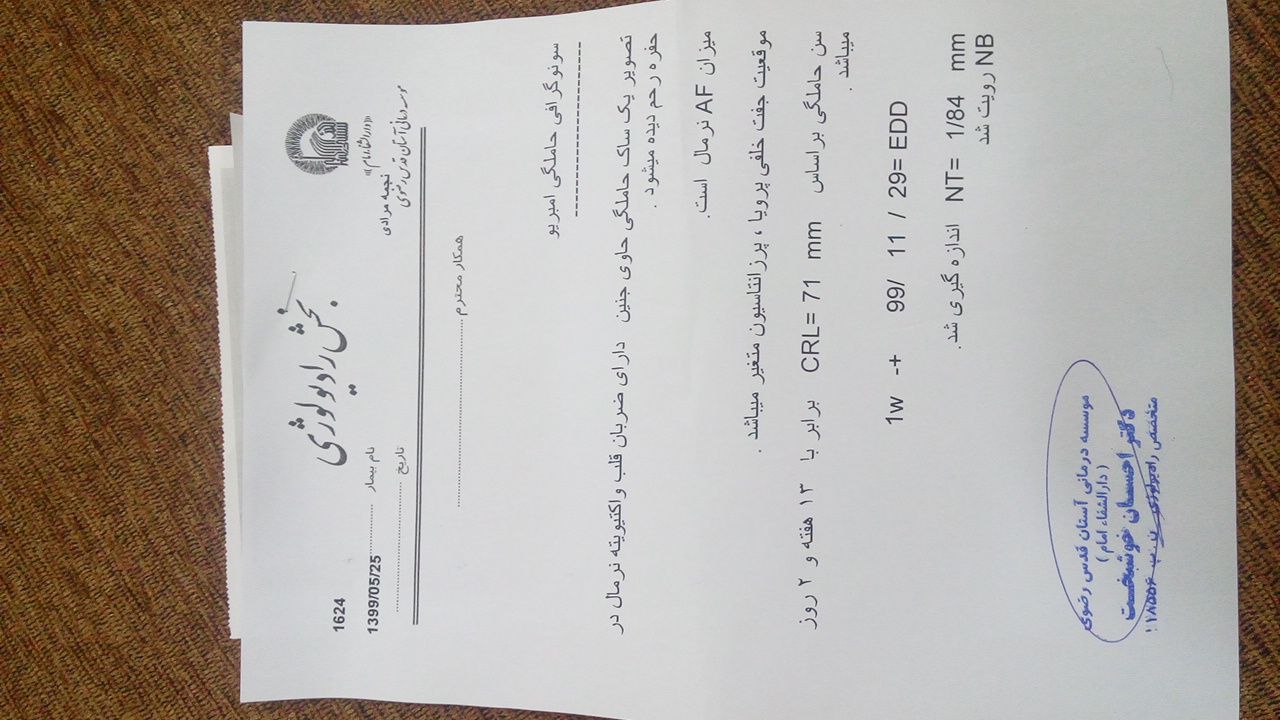 بخش رادیولوژی
موسسه درمانی آستان قدس رضوی
«دارالشفاء امام»
1624
نجمه مرادی
نام بیمار
1399/05/25
تاریخ
همکار محترم
سونوگرافی حاملگی امبریو
تصویر یک ساک حاملگی حاوی جنین دارای ضربان قلب و اکتیویته نرمال در
حفره رحم دیده میشود .
میزان AF نرمال است.
موقعیت جفت خلفی پرویا ، پرزانتاسیون متغیر میباشد .
سن حاملگی بر اساس CRL= 71 mm برابر با ۱۳ هفته و ۲ روز
میباشد .
1w -+ 99/ 11 / 29= EDD
NT= 1/84 mm اندازه گیری شد.
NB رویت شد
موسسه درمانی آستان قدس رضوی
(دارالشفاء امام)
دکتر احسان خوشبخت
متخصص رادیولوژی ن.پ ۱۱۸۵۵۶